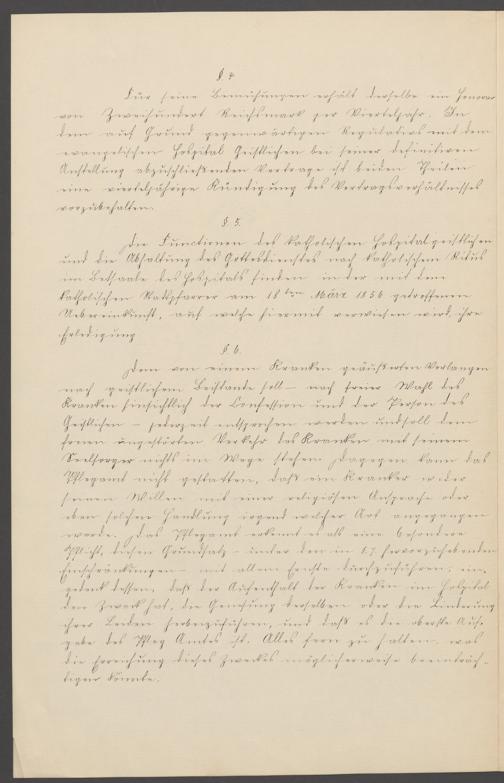 § 4
Für seine Bemühungen erhält derselbe ein Honorar
von Zweihundert Reichsmark per Vierteljahr. In
dem auf Grund gegenwärtigen Regulativs mit dem
evangelischen Hospital Geistlichen bei seiner definitiven
Anstellung abzuschließenden Vertrage ist beiden Theilen
eine vierteljährige Kündigung des Vertragsverhältnisses
vorzubehalten.
§. 5.
Die Functionen des katholischen Hospitalgeistlichen
und die Abhaltung des Gottesdienstes nach katholischem Ritus
im Betsaale des Hospitals finden in der mit dem
katholischen Stadtpfarrer am 18ten März 1856 getroffenen
Uebereinkunft, auf welche hiermit verwiesen wird, ihre
Erledigung
§ 6.
Dem von einem Kranken geäußerten Verlangen
nach geistlichem Beistande soll – nach freier Wahl des
Kranken hinsichtlich der Confession und der Person des
Geistlichen – jederzeit entsprochen werden und soll dem
ungestörten Verkehr des Kranken mit seinem
Seelsorger nichts im Wege stehen. Dagegen kann das
Pflegamt nicht gestatten, daß ein Kranker wider
seinen Willen mit einer religiösen Ansprache oder
eben solchen Handlung irgend welcher Art angegangen
werde. Das Pflegamt erkennt es als eine besondere
Pflicht, diesen Grundsatz – unter den in hervorzuhebenden
Einschränkungen – mit allem Ernste durchzuführen, ein-
gedenk dessen, daß der Aufenthalt der Kranken im Hospital
den Zweck hat, die Genesung derselben oder die Linderung
ihrer Leiden herbeizuführen, und daß es die oberste Auf-
gabe des Pfleg Amtes ist, Alles fern zu halten, was
die Erreichung dieses Zweckes möglicherweise beeinträch-
tigen könnte.